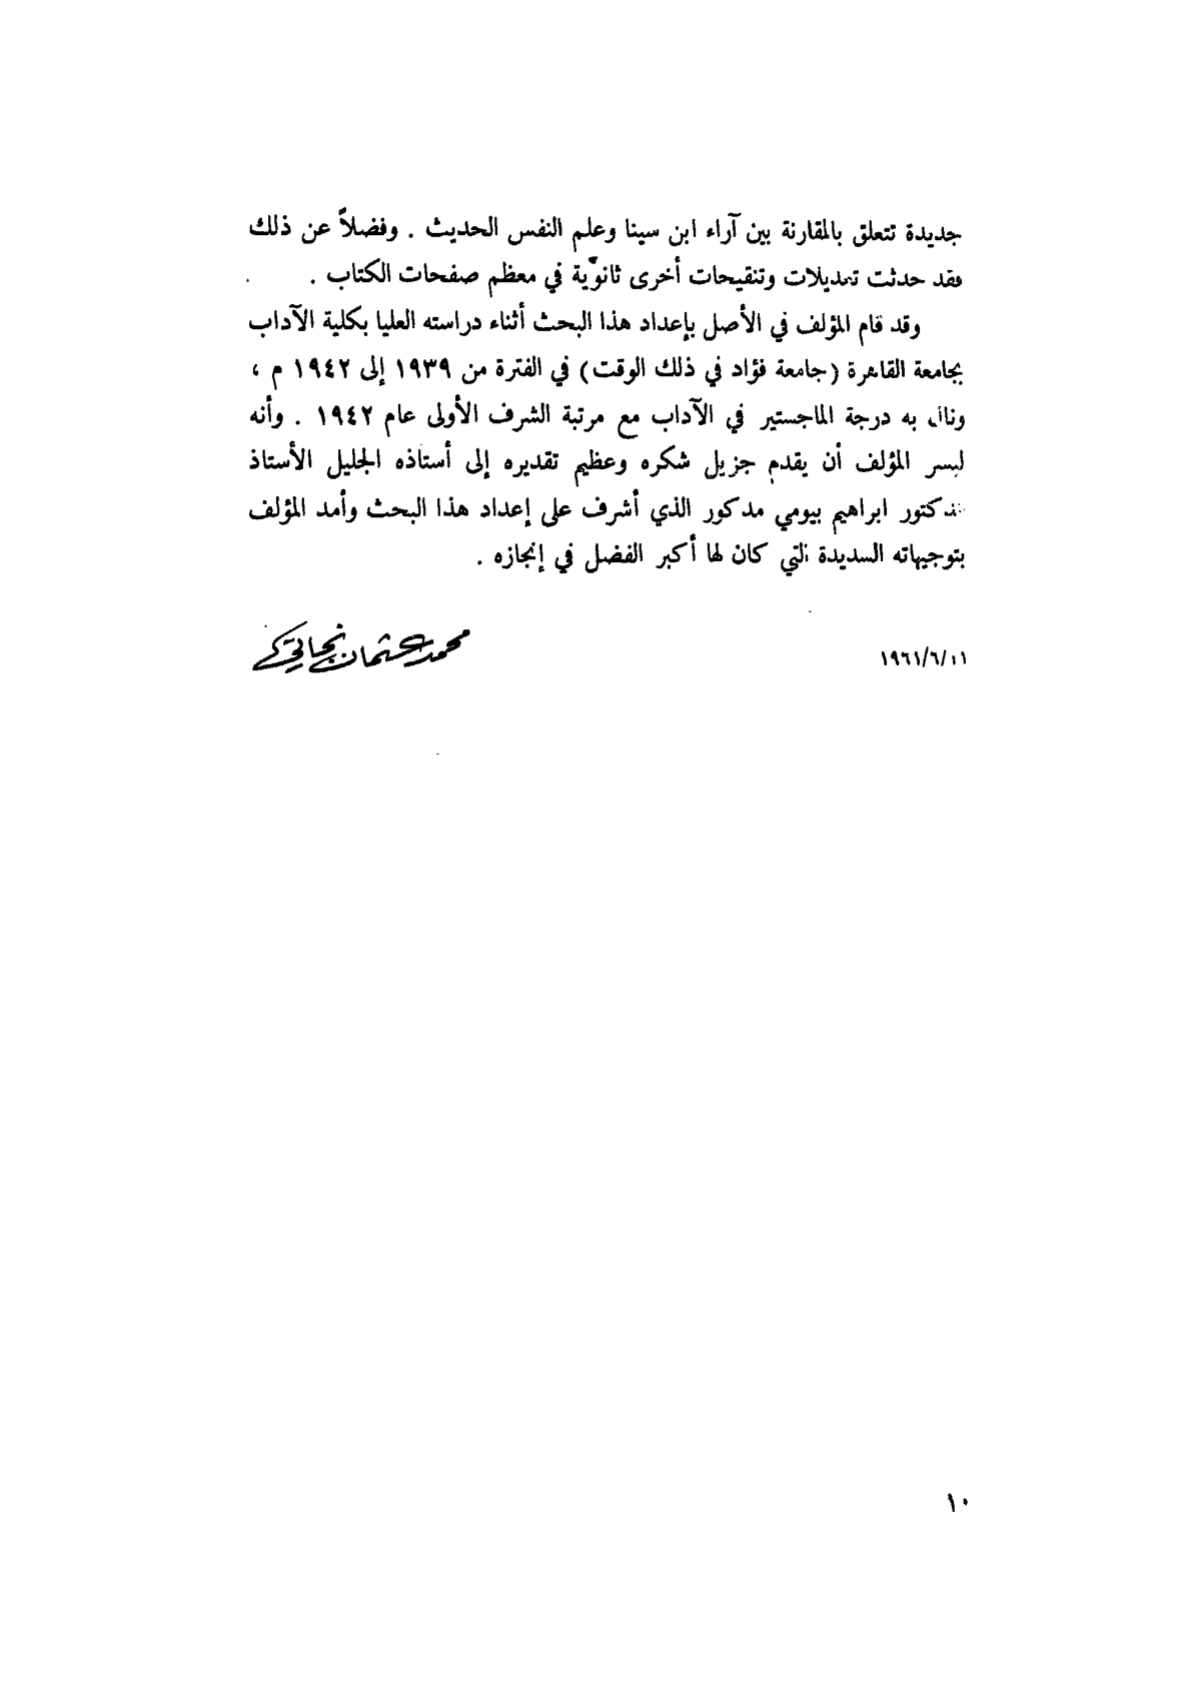 جديدة تتعلق بالمقارنة بين آراء ابن سينا وعلم النفس الحديث . وفضلاً عن ذلك
فقد حدثت تعديلات وتنقيحات أخرى ثانوية في معظم صفحات الكتاب .
وقد قام المؤلف في الأصل بإعداد هذا البحث أثناء دراسته العليا بكلية الآداب
بجامعة القاهرة (جامعة فؤاد في ذلك الوقت) في الفترة من ١٩٣٩ إلى ١٩٤٢ م ،
ونال به درجة الماجستير في الآداب مع مرتبة الشرف الأولى عام ١٩٤٢ . وأنه
ليسر المؤلف أن يقدم جزيل شكره وعظيم تقديره إلى أستاذه الجليل الأستاذ
الدكتور ابراهيم بيومي مدكور الذي أشرف على إعداد هذا البحث وأمد المؤلف
بتوجيهاته السديدة التي كان لها أكبر الفضل في إنجازه .
محمد عثمان نجاتي
١٩٦١/٦/١١
١٠